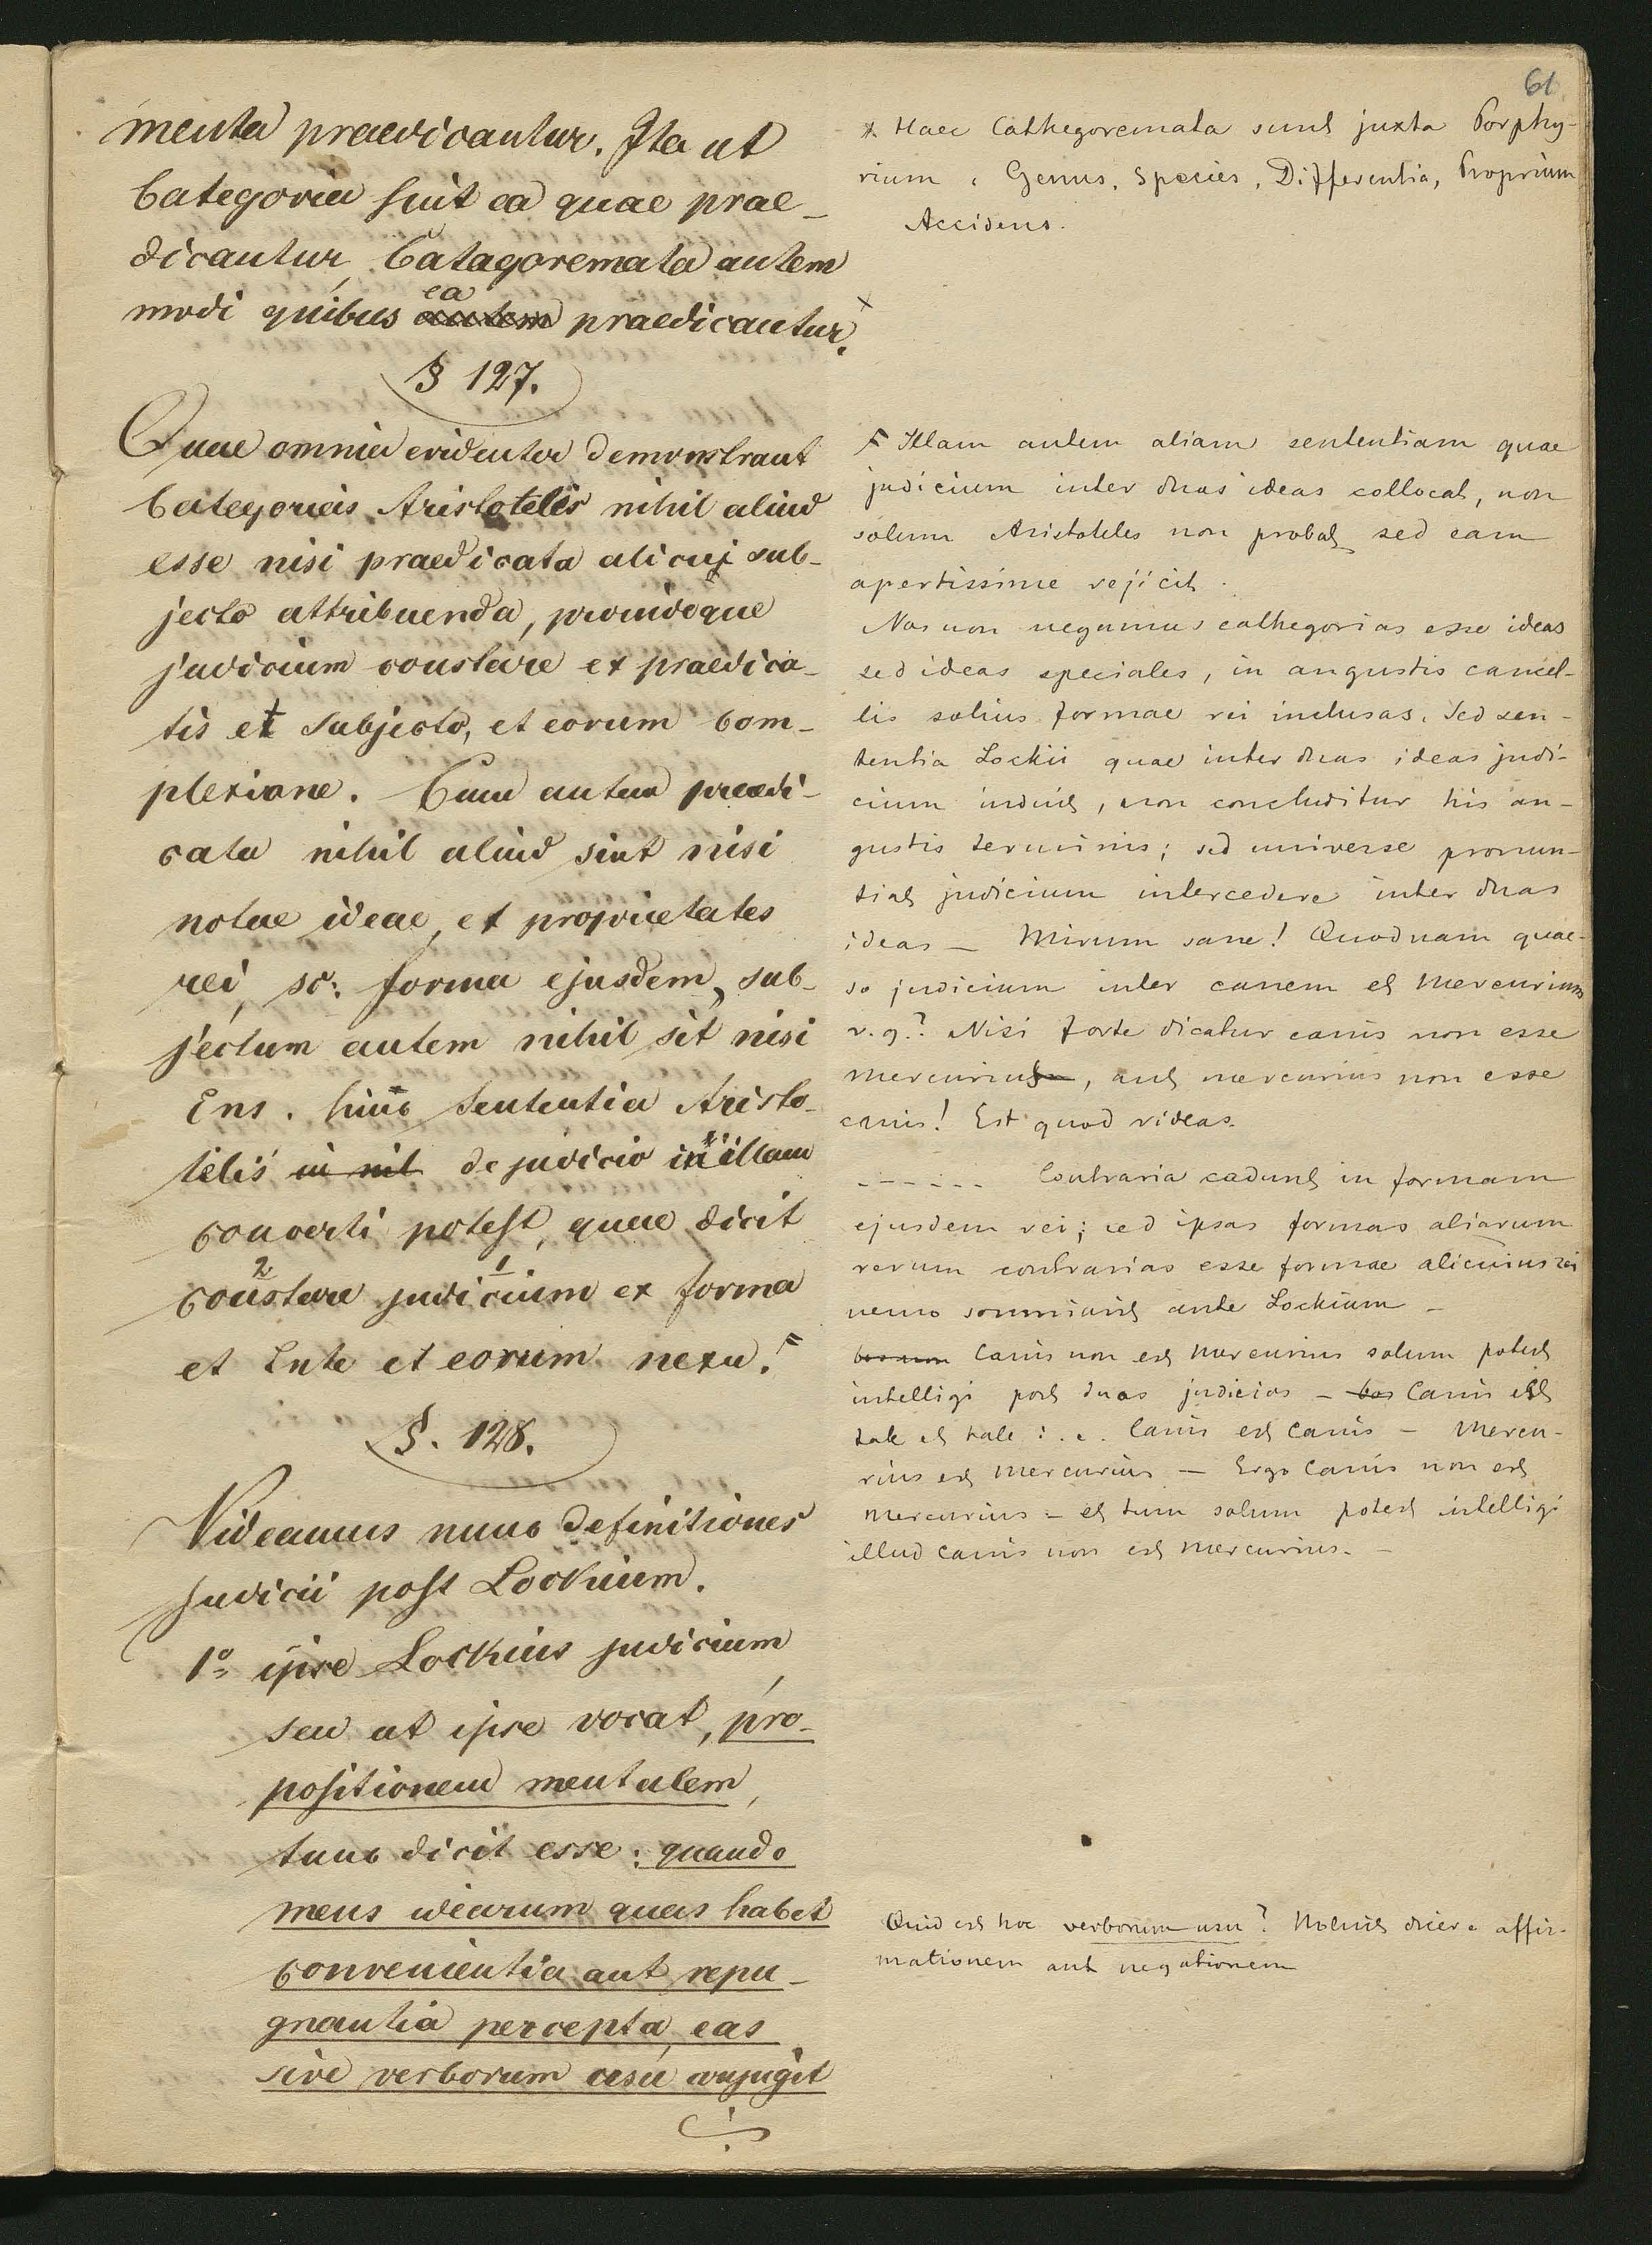 61
menta praedicantur. Ita ut
Categoria sint ea quae prae-
dicantur, Catagoremata autem
modi quibus ea autem praedicantur. x
§ 127.
Quae omnia evidenter demonstrant
Categorias Aristotelis nihil aliud
esse nisi praedicata alicui sub-
jecto attribuenda, proindeque
judicium constare ex praedica-
tis et subjecto, et eorum com-
plexione. Cum autem praedi-
cata nihil aliud sint nisi
notae ideae, et proprietates
rei, sc: forma ejusdem, sub-
jectum autem nihil sit nisi
Ens. hinc sententia Aristo-
telis in nil de judicio in illam
converti potest, quae dicit
2 1
constare judicium ex forma
et Ente et eorum nexu. F
§. 128.
Videamus nunc definitiones
Judicii post Lockium.
1º ipse Lockius judicium
seu ut ipse vocat, pro-
positionem mentalem,
tunc dicit esse: quando
mens idearum quas habet
convenientia aut repu-
gnantia percepta, eas
sive verborum usu conjugit
x Haec Cathegoremata sunt juxta Porphy-
rium, Genus, Species, Differentia, Proprium
Accidens.
F Illam autem aliam sententiam quae
judicium inter duas ideas collocat, non
solum Aristoteles non probat, sed eam
apertissime rejicit.
Nos non negamus cathegorias esse ideas
sed ideas speciales, in angustis cancel-
lis solius formae rei inclusas. Sed sen-
tentia Lockii quae inter duas ideas judi-
cium induit, non concluditur his an-
gustis terminis; sed universe pronun-
tiat judicium intercedere inter duas
ideas - Mirum sane! Quodnam quae-
so judicium inter canem et Mercurium
v. g.? Nisi forte dicatur canis non esse
mercurius, aut mercurius non esse
canis! Est quod rideas.
------ Contraria cadunt in formam
ejusdem rei; sed ipsas formas aliarum
rerum contrarias esse formae alicuius rei
nemo somniavit ante Lockium -
bos non Canis non est Mercurius solum potest
intelligi post duas judicias - bos Canis est
tale et tale i. e. Canis est Canis - Mercu-
rius est mercurius - Ergo Canis non est
Mercurius - et tum solum potest intelligi
illud canis non est mercurius. -
Quid est hoc verborum usu? Noluit dicere affir-
mationem aut negationem